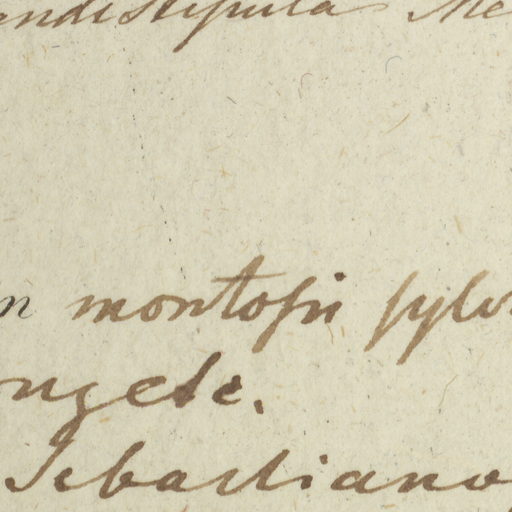 endistipula Me
n montosis sylv
ngele.
Sebastiano